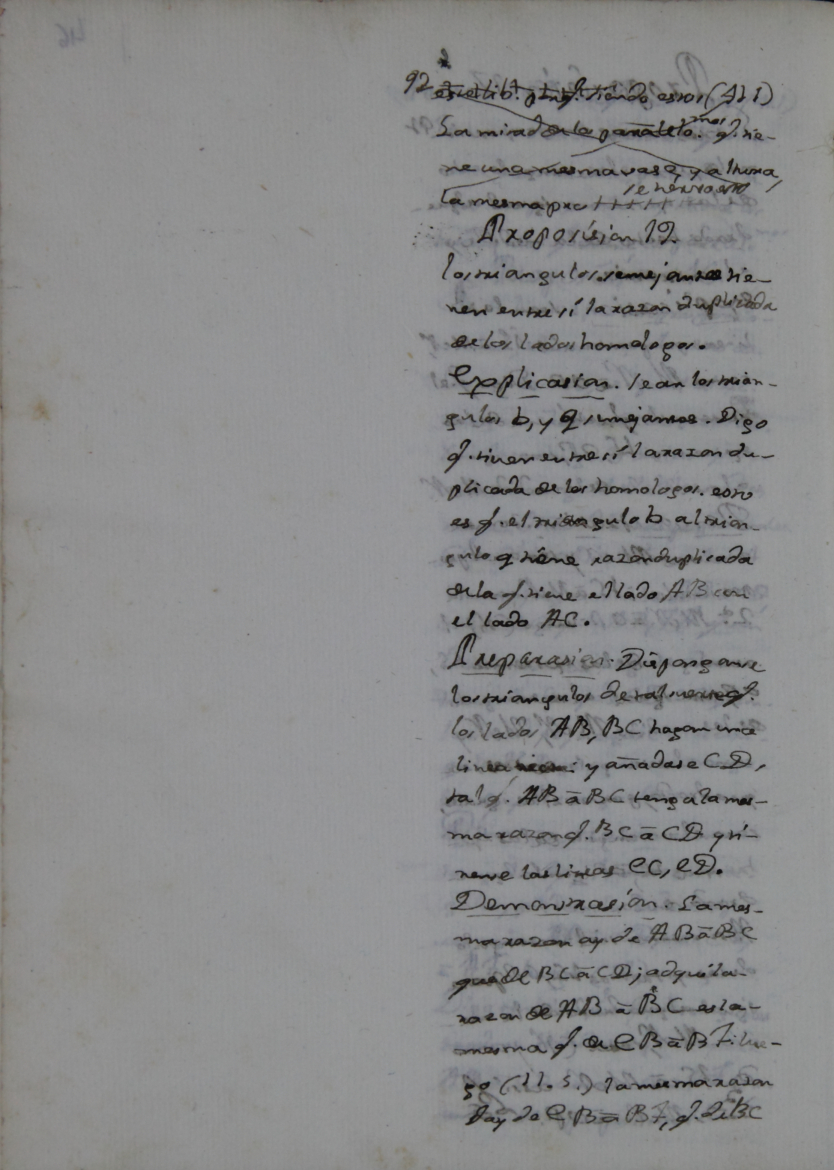 92
siendo estos (41 1)
La mitad de los paralelo. q. tie-
ne una mesma vase, y altura,
la mesma pro
Proposision 12
los triangulos semejantes tie-
nen entre sí la razon duplicada
de los lados homologos.
Explicasion. Sean los trian-
gulos b, y q semejantes. Digo
q. tienen entre sí la razon du-
plicada de los homologos. esto
es q. el triangulo b al trian-
gulo q tiene razon duplicada
de la q. tiene el lado AB con
el lado AC.
Preparasion. Disponganse
los triangulos de tal suerte q.
los lados AB, BC hagan una
linea : y añadase CD,
tal q. AB à BC tenga la mes-
ma razon q. BC à CD y ti-
rense las lineas eC, eD.
Demonstrasion. La mes-
ma razon ay de AB à BC
que de BC à CD; la
razon de AB à BC es la
mesma q. de eB à BF: lue-
go (11. 5.) la mesma razon
ay de eB à BF, q. de BC